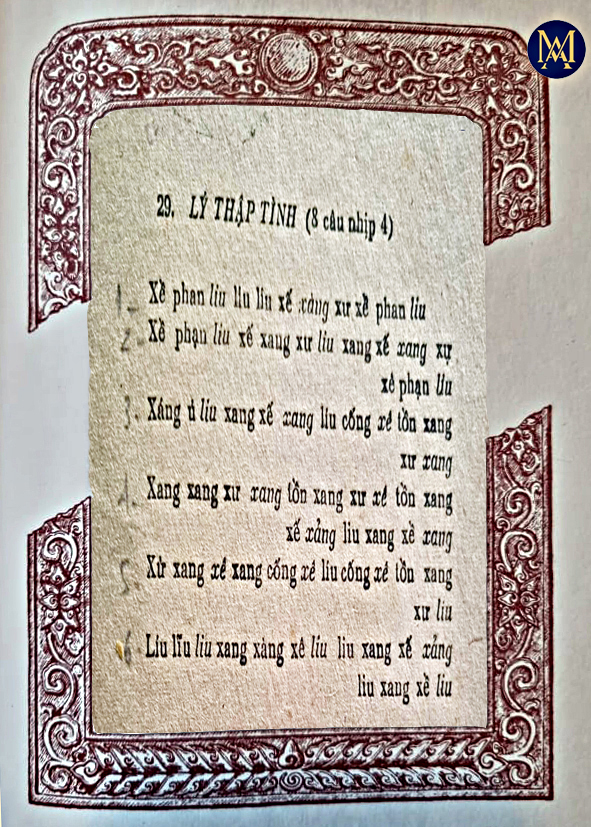 MA
29. LÝ THẬP TÌNH (8 câu nhịp 4)
1- Xề phan liu liu liu xế xảng xư xề phan liu
2- Xề phạn liu xế xang xư liu xang xế xang xự
xê phạn líu
3- Xáng ú liu xang xế xang líu cống xê tồn xang
xư xang
4- Xang xang xư xang tồn xang xư xê tồn xang
xế xảng liu xang xề xang
5- Xừ xang xế xang cống xê liu cống xê tồn xang
xư liu
6 Líu lĩu liu xang xàng xê liu liu xang xế xảng
liu xang xề liu